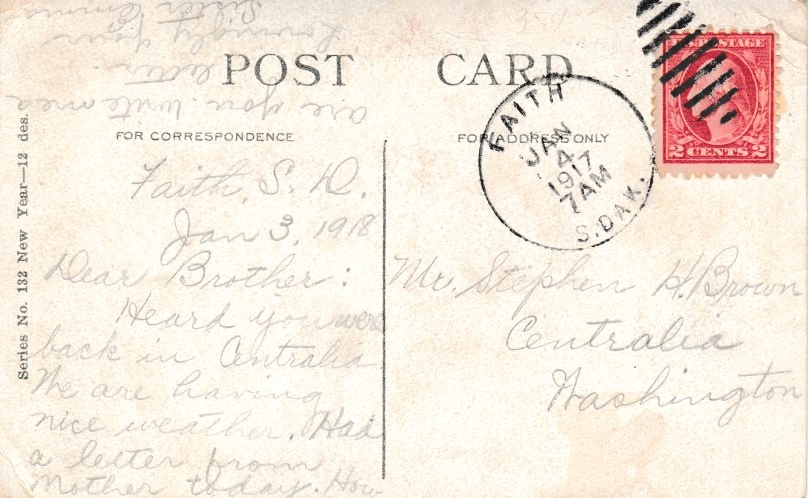 POST CARD
FOR CORRESPONDENCE
FOR ADDRESS ONLY
Series No. 132 New Year—12 des.
U.S. POSTAGE
2 CENTS 2
FAITH
JAN
4
1917
7 AM
S. DAK.
Faith, S. D.
Jan 3, 1918
Dear Brother:
Heard you were
back in Centralia
We are having
nice weather. Had
a letter from
Mother today. How
are you. Write me a
letter.
Lovingly Your
Sister Emma
Mr. Stephen H. Brown
Centralia
Washington